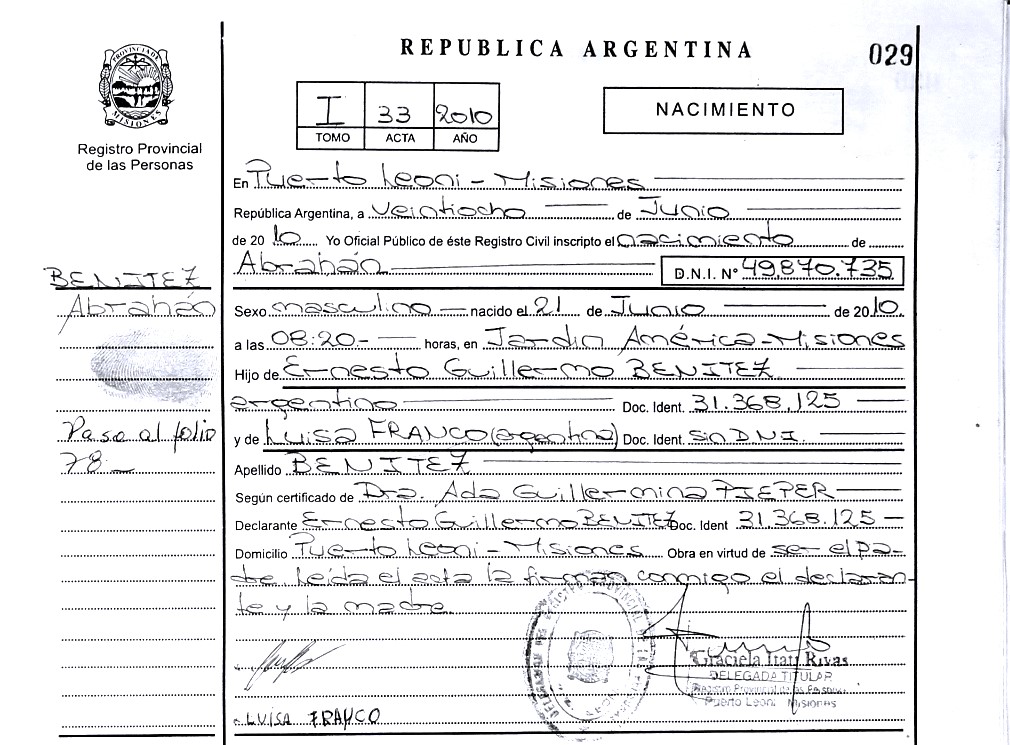 REPUBLICA ARGENTINA
029
PROVINCIA DE MISIONES
Registro Provincial
de las Personas
I 33 2010
TOMO ACTA AÑO
NACIMIENTO
En Puerto Leoni - Misiones
República Argentina, a Veintiocho de Junio
de 20 10 Yo Oficial Público de éste Registro Civil inscripto el nacimiento de
Abrahán D.N.I. Nº 49.870.735
BENITEZ
Abrahán
Paso al folio
78
Sexo masculino nacido el 21 de Junio de 2010
a las 08:20 horas, en Jardin América - Misiones
Hijo de Ernesto Guillermo BENITEZ
argentino Doc. Ident. 31.368.125
y de Luisa FRANCO (argentina) Doc. Ident. sin DNI.
Apellido BENITEZ
Según certificado de Dra. Ada Guillermina PIEPER
Declarante Ernesto Guillermo BENITEZ Doc. Ident 31.368.125
Domicilio Puerto Leoni - Misiones Obra en virtud de ser el pa-
dre Leída el acta la firman conmigo el declaran-
te y la madre
Graciela Itatí Rivas
DELEGADA TITULAR
Registro Provincial de las Personas
Puerto Leoni Misiones
LUISA FRANCO